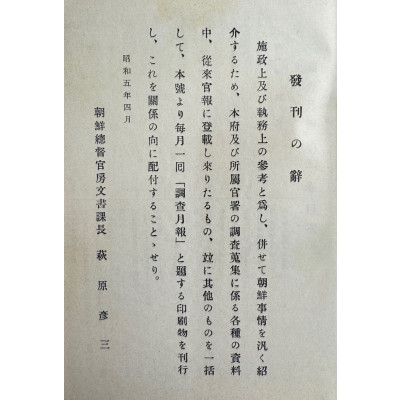 發刊の辭
施政上及び執務上の參考と爲し、併せて朝鮮事情を汎く紹
介するため、本府及び所屬官署の調査蒐集に係る各種の資料
中、從來官報に登載し來りたるもの、竝に其他のものを一括
して、本號より每月一回「調査月報」と題する印刷物を刊行
し、これを關係の向に配付することゝせり。
昭和五年四月
朝鮮總督官房文書課長 萩原彥三